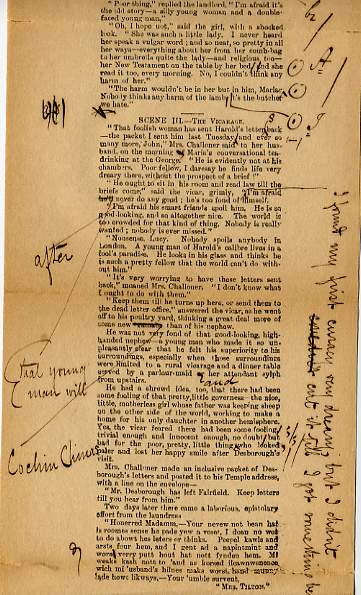 "Poor thing," replied the landlord. "I'm afraid it's
the old story—a silly young woman and a double-
faced young man."
"Oh, I hope not," said the girl, with a shocked
look. "She was such a little lady. I never heard
her speak a vulgar word; and so neat, so pretty in all
her ways—everything about her from her comb-bag
to her umbrella quite the lady—and religious too—
her New Testament on the table by her bed, and she
read it too, every morning. No, I couldn't think any
harm of her."
"The harm wouldn't be in her but in him, Maria.
Nobody thinks any harm of the lamb, it's the butcher
we hate."
SCENE III.—THE VICARAGE.
"That foolish woman has sent Harold's letters back
—the packet I sent him last Tuesday, and ever so
many more, John," Mrs. Challoner said to her hus-
band, on the morning Maria's conversational tea-
drinking at the George. "He is evidently not at his
chambers. Poor fellow, I daresay he finds life very
dreary there, without the prospect of a brief!"
"He ought to sit in his room and read law till the
briefs come," said the vicar, grimly. "I'm afraid
never do any good; he's too fond of himself."
"I'm afraid his smart friends spoil him. He is so
good-looking, and so altogether nice. The world is
too crowded for that kind of thing. Nobody is really
wanted; nobody is ever missed."
"Nonsense, Lucy. Nobody spoils anybody in
London. A young man of Harold's calibre lives in a
fool's paradise. He looks in his glass and thinks he
is such a pretty fellow that the world can't do with-
out him."
"It's very worrying to have these letters sent
back," moaned Mrs. Challoner. "I don't know what
I ought to do with them."
"Keep them till he turns up here, or send them to
the dead letter office," answered the vicar, as he went
off to his poultry yard, thinking a great deal more of
some new than of his nephew.
He was not very fond of that good-looking, high-
handed nephew—a young man who made it so un-
pleasantly clear that he felt his superiority to his
surroundings, especially when those surroundings
were limited to a rural vicarage and a dinner table
served by a parlour-maid her attendant sylph
from upstairs.
He had a shrewd idea, too, that there had been
some fooling of that pretty little governess—the nice,
little, motherless girl whose father was keeping sheep
on the other side of the world, working to make a
home for his only daughter in another hemisphere.
Yes, the vicar feared there had been some fooling,
trivial enough and innocent enough, no doubt, but
bad for the poor, pretty, little thing, who looked
paler and lost her happy smile after Desborough's
visit.
Mrs. Challoner made an inclusive packet of Des-
borough's letters and posted it to his Temple address,
with a line on the envelope—
"Mr. Desborough has left Fairfield. Keep letters
till you hear from him."
Two days later there came a laborious, epistolary
effort from the laundress
"Honerred Madamm,—Your nevew not bean hat
is rooms sense he rade yure wot
to do abows hes leters or thinks.
arsts four hem, and I gent ad a
very putt hout hat nott
weaks kash note to 'and as
wich mi 'usbund's
jade how likways.—Yure 'umble survent
"MRS. TILTON."
after
that young
man will
Cochin Chinas
and
I found my first curacy very dreary, but I didn't
cut it till I got something better